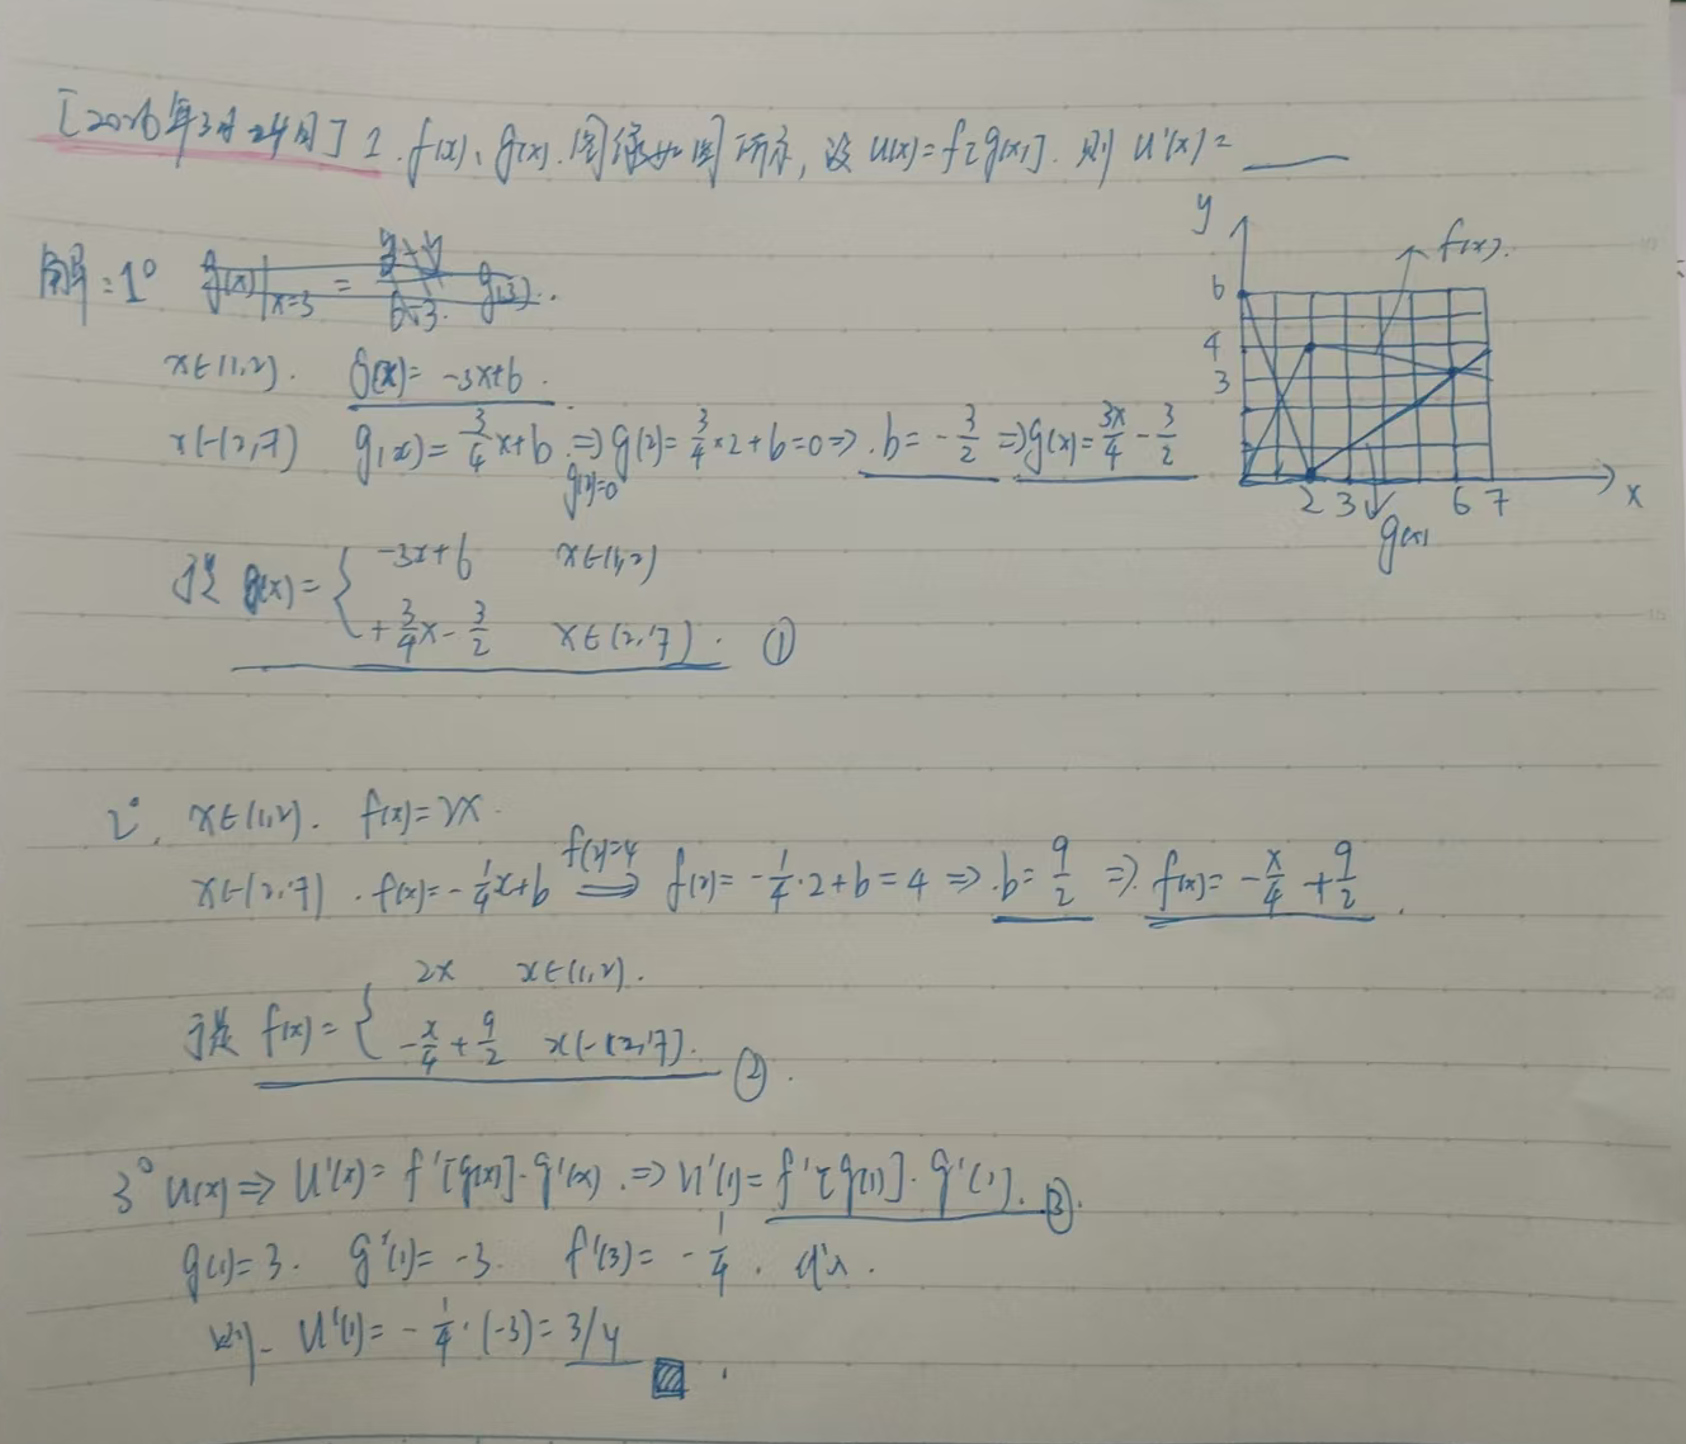 [2026年3月24周] 1. f(x)、g(x).图像如图所示, 设 u(x)=f[g(x)]. 则 u'(x)=____
解:1° g(x)|x=3 = g(3).
x∈(1,2). g(x)=-3x+6.
x∈(2,7) g(x)=3/4x+b ⇒ g(2)=3/4×2+b=0⇒.b=-3/2 ⇒g(x)=3x/4-3/2
g(2)=0
于是 g(x)={ -3x+6 x∈(1,2)
+3/4x-3/2 x∈(2,7). ①
2°. x∈(1,2). f(x)=2x.
x∈(2,7). f(x)=-1/4x+b f(2)=4 ⇒ f(2)=-1/4·2+b=4⇒.b=9/2 ⇒. f(x)=-x/4+9/2.
于是 f(x)={ 2x x∈(1,2).
-x/4+9/2 x∈(2,7). ②.
3° u(x)⇒ u'(x)=f'[g(x)]·g'(x).⇒u'(1)=f'[g(1)]·g'(1). ③.
g(1)=3. g'(1)=-3. f'(3)=-1/4.
则 u'(1)=-1/4·(-3)=3/4
y
f(x).
6
4
3
2 3 6 7 x
g(x)